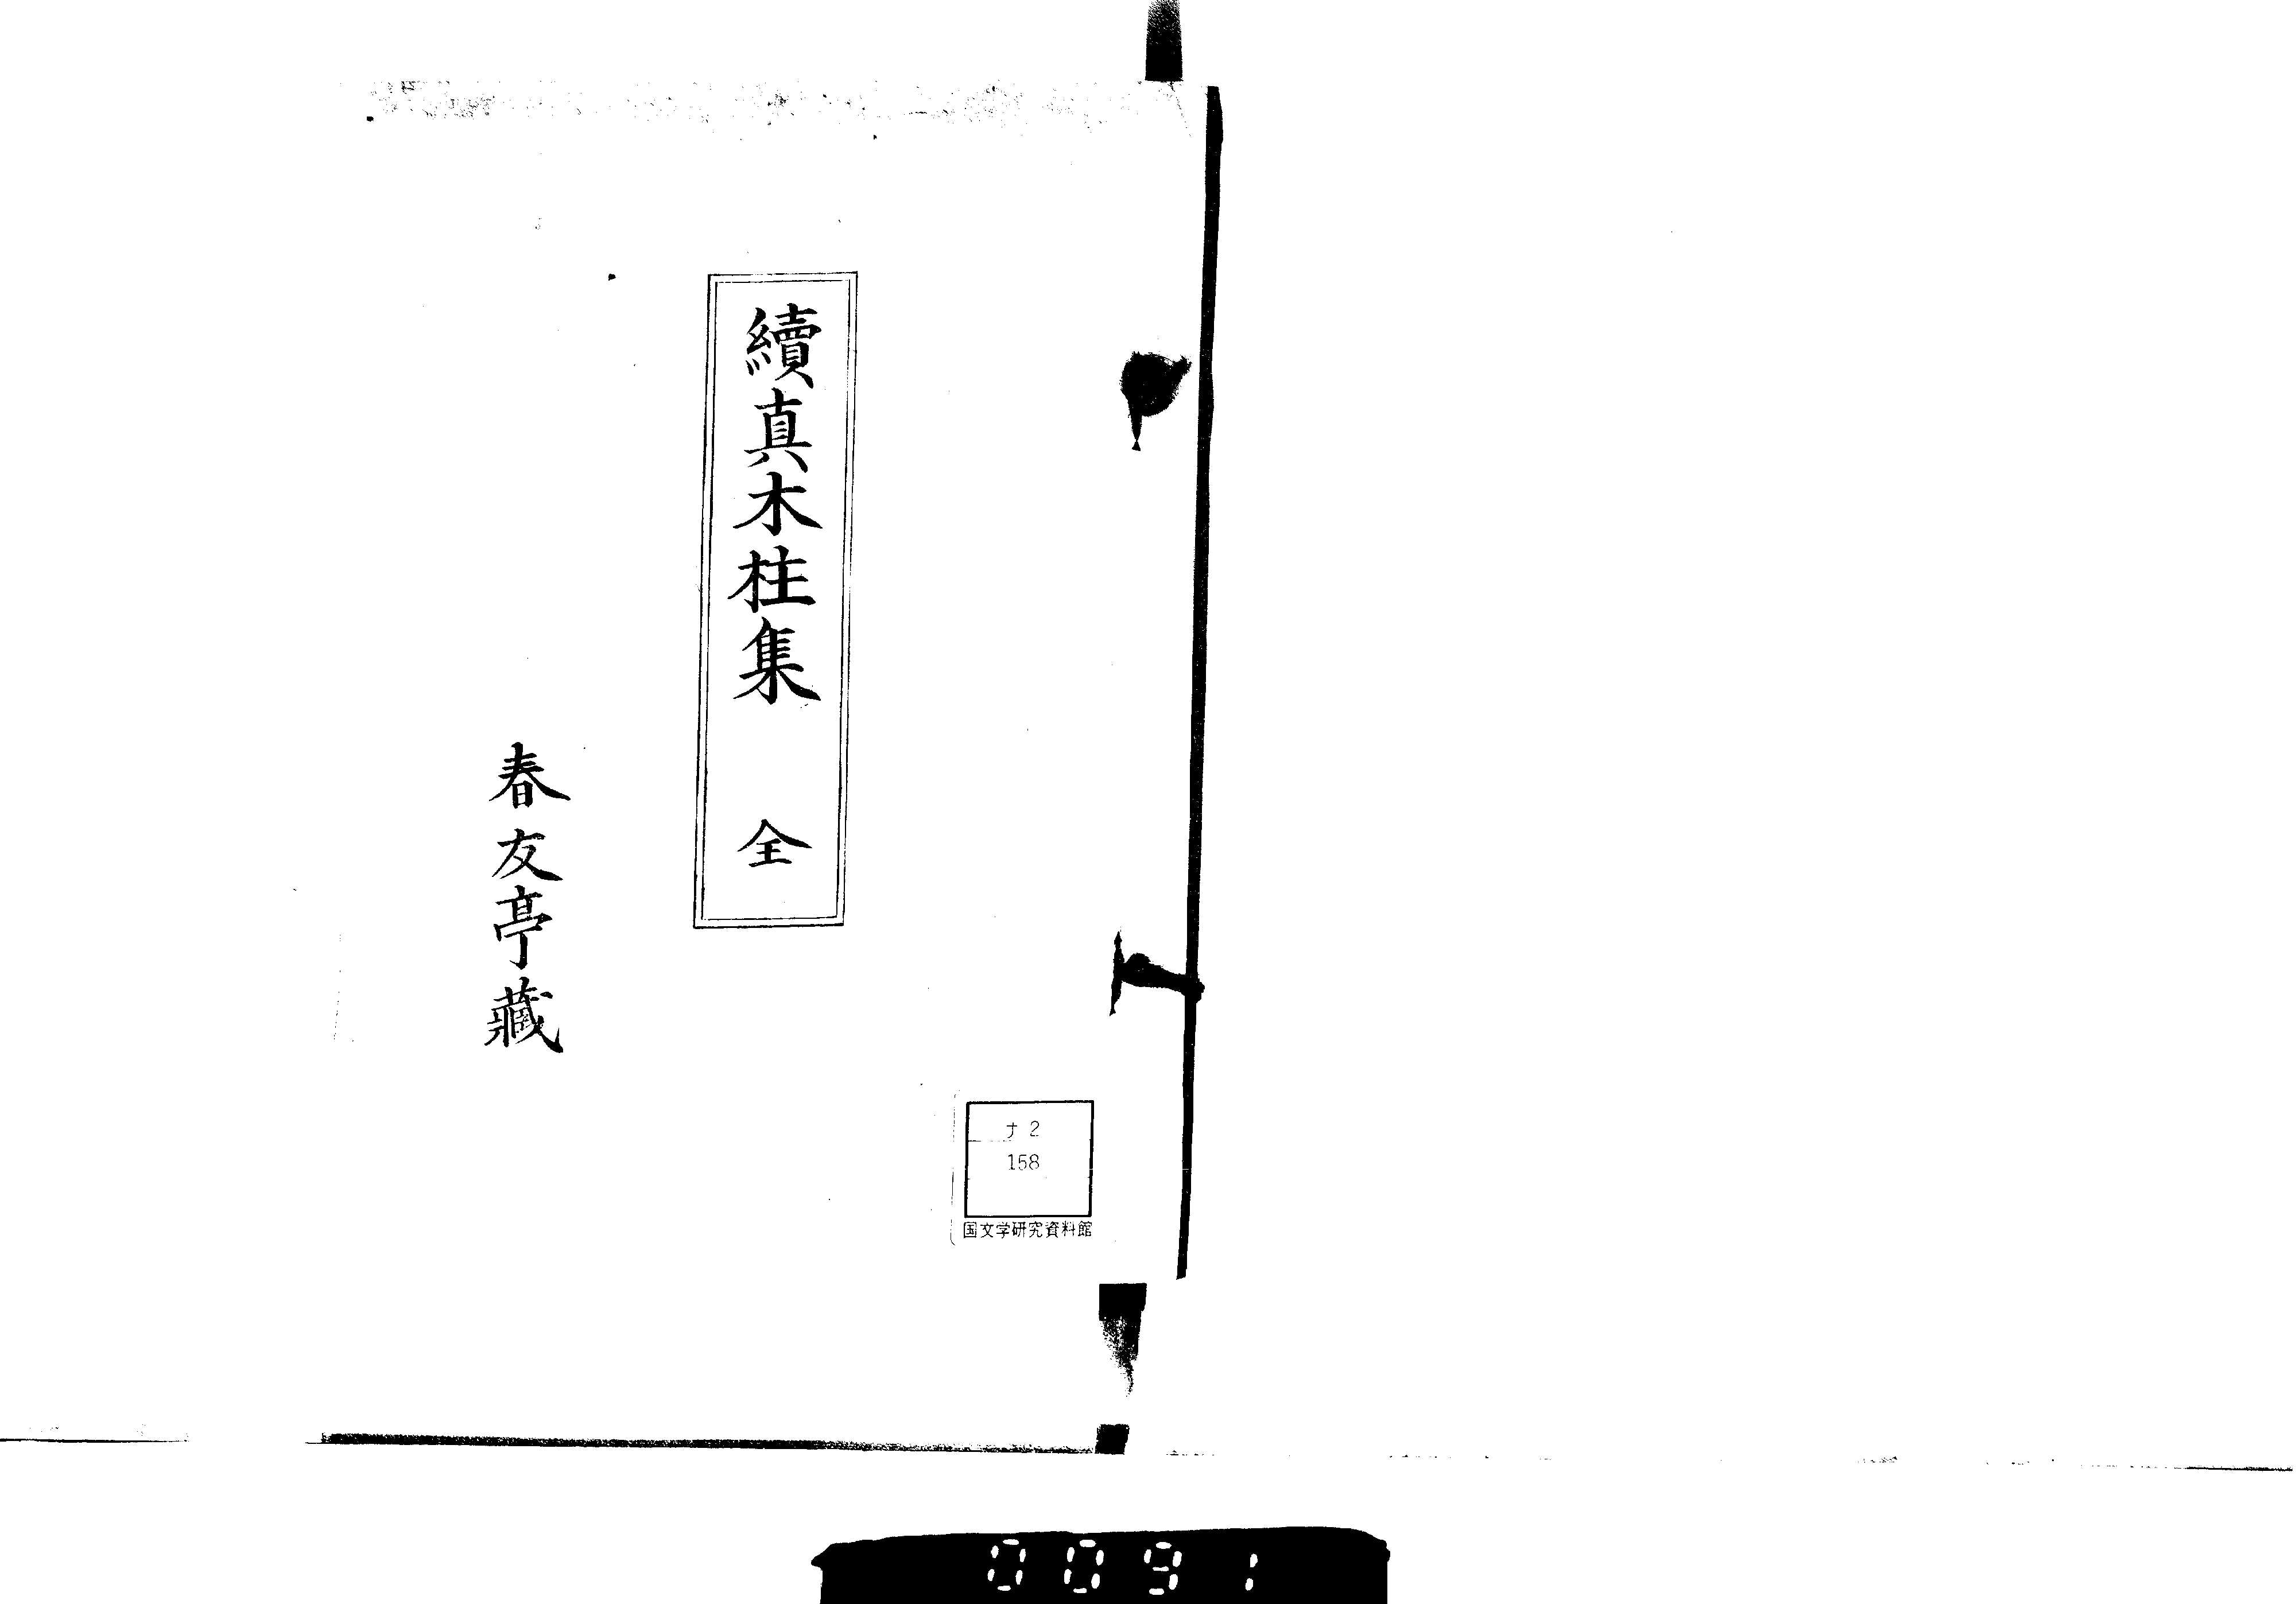 續真木柱集　全
春友亭藏
ナ2
158
国文学研究資料館
0091